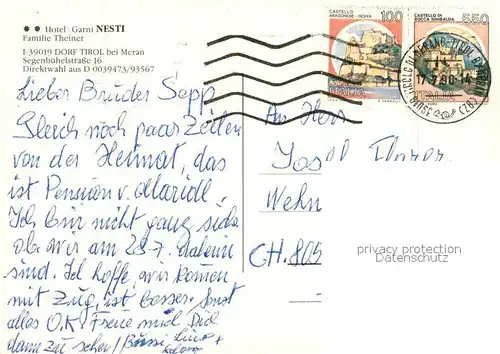 Hotel Garni NESTI
Familie Theiner
I-39019 DORF TIROL bei Meran
Segenbühelstraße 16
Direktwahl aus D 0039473/93567
CASTELLO ARAGONESE - ISCHIA 100
CASTELLO DI ROCCA SINIBALDA 550
ITALIA
17.7.90-14
Lieber Bruder Sepp
Gleich noch paar Zeilen
von der Heimat, das
ist Pension v. Maridl.
Ich bin nicht ganz sich.
ob wir am 28.7. daheim
sind. Ich hoffe, wir kommen
mit Zug, ist besser. Sonst
alles O.K. Freue mich Dich
dann zu sehen / Bussi
An Herr
Josef
Wehn
CH. 805
privacy protection
Datenschutz